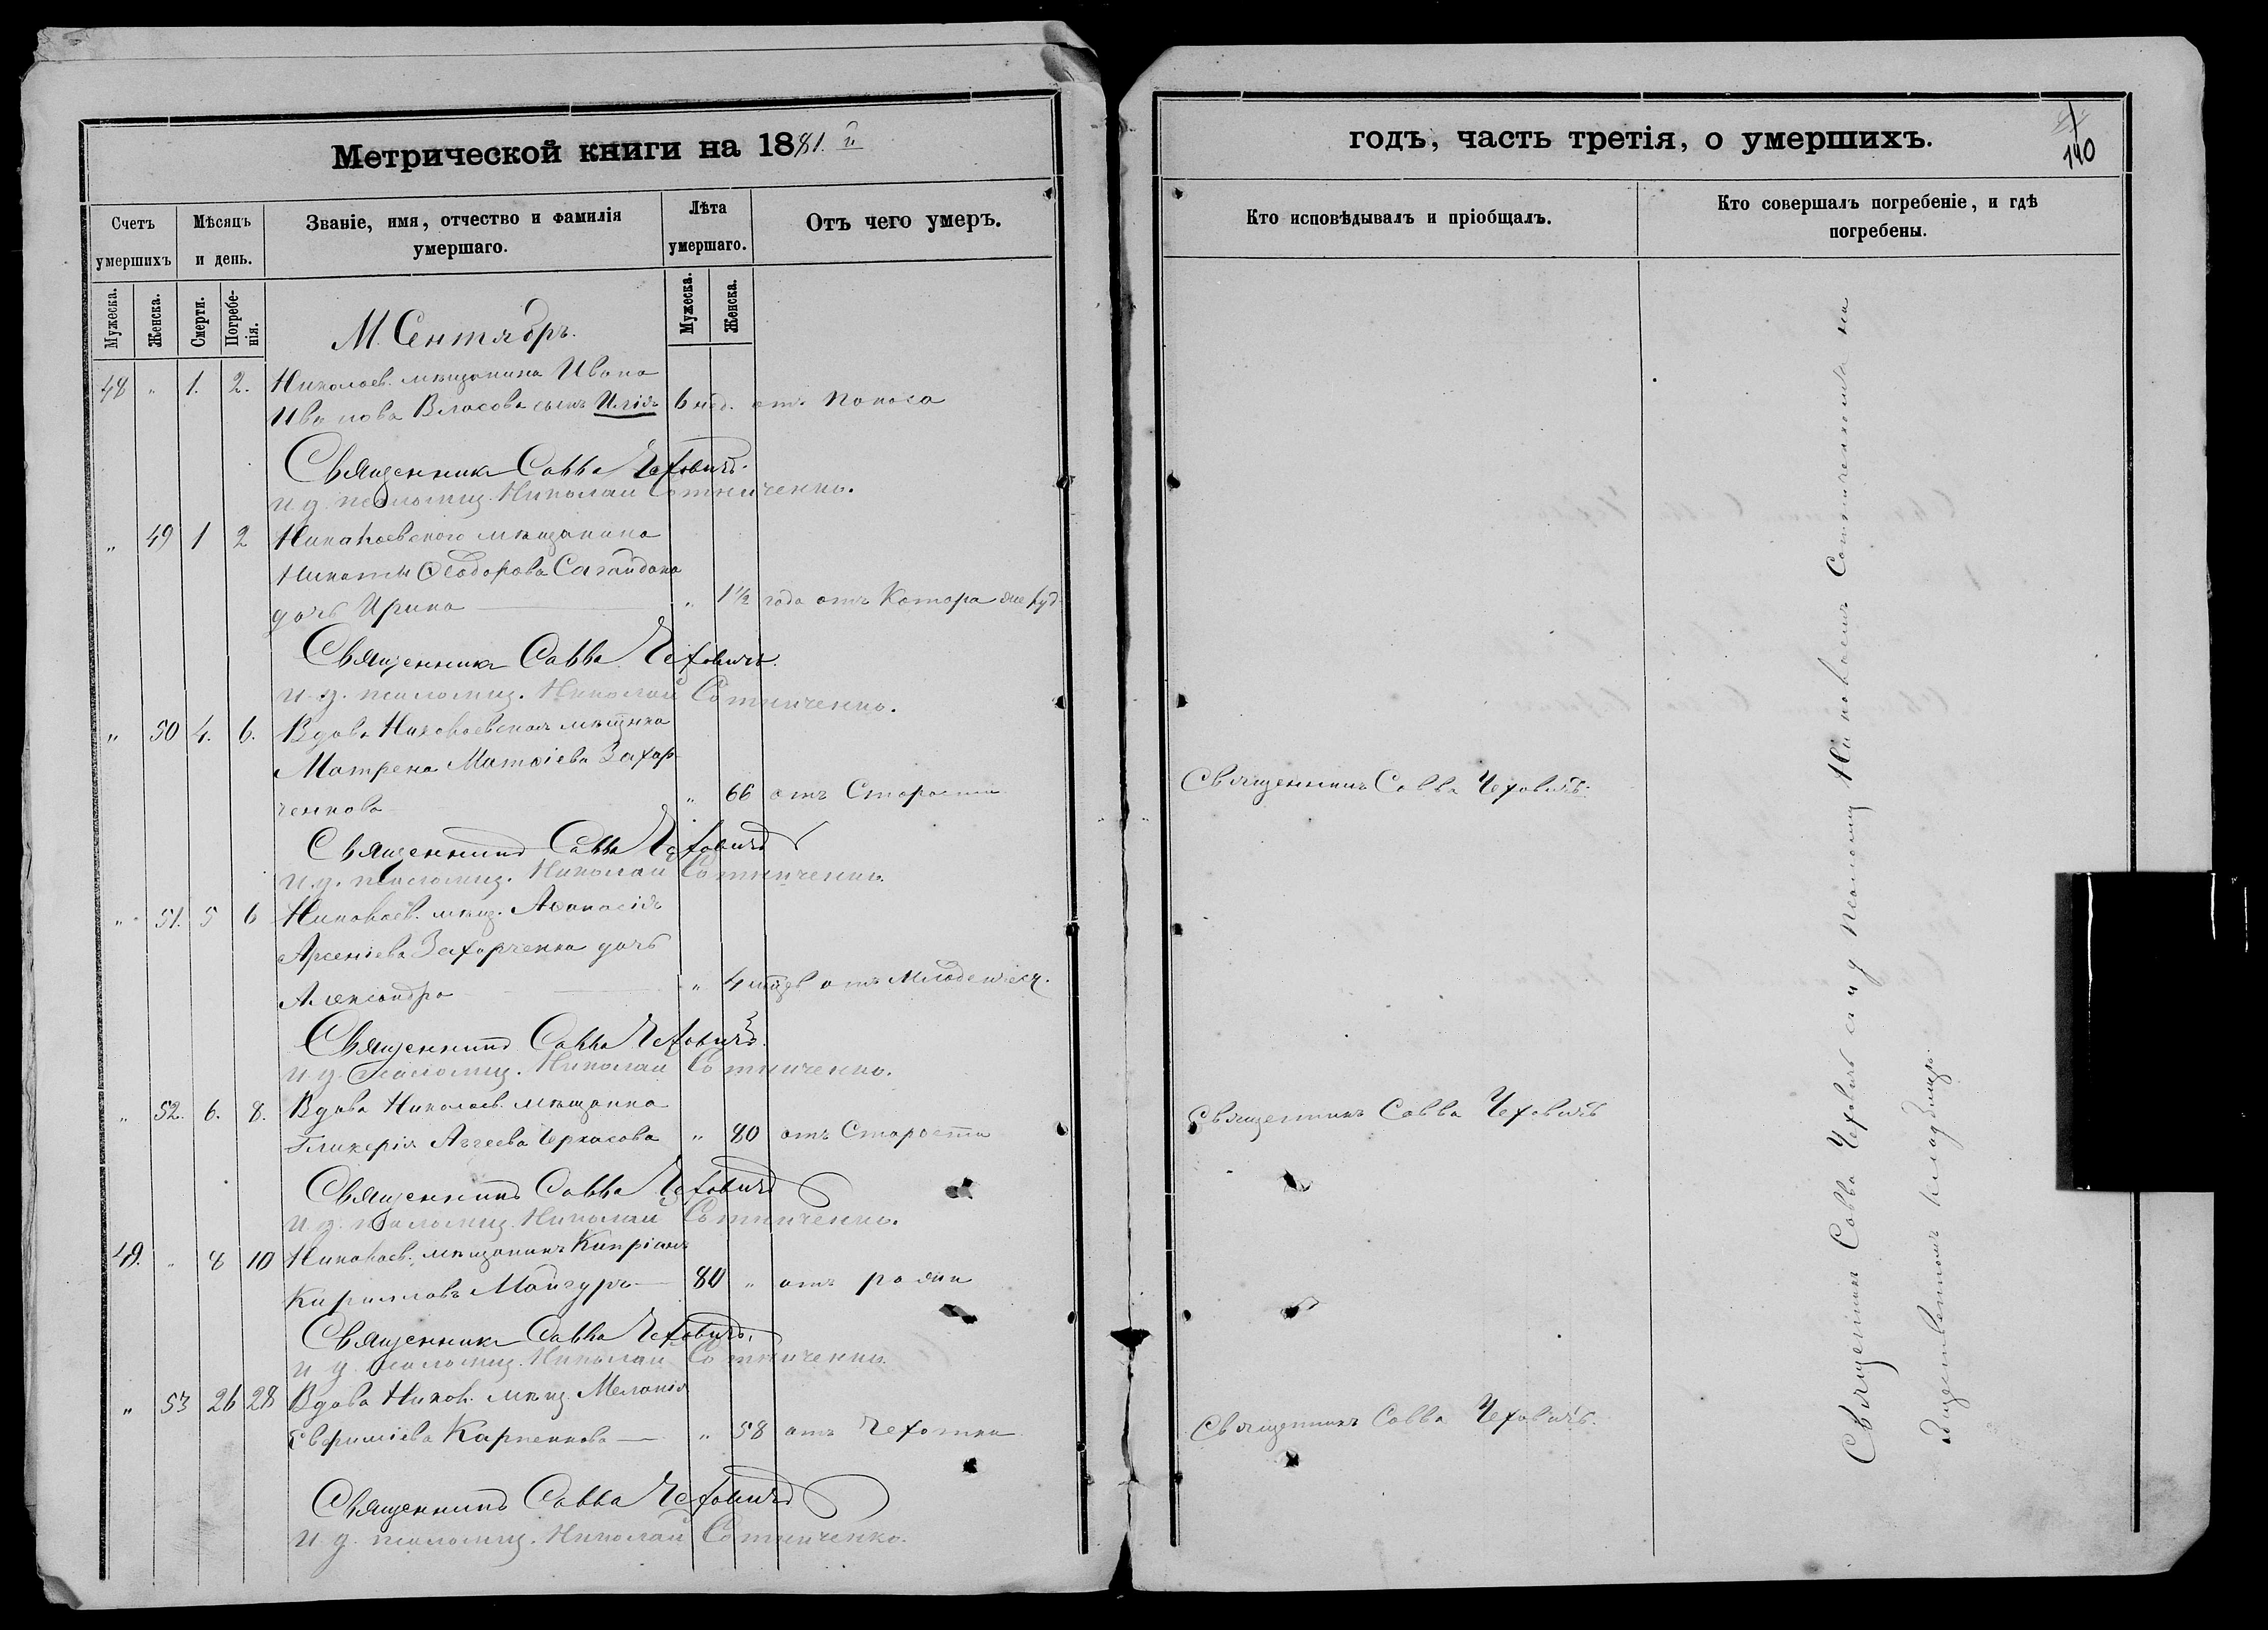 Метрической книги на 1881.й
Счетъ умершихъ
Мѣсяцъ и день.
Званіе, имя, отчество и фамилія умершаго.
Лѣта умершаго.
Отъ чего умеръ.
Мужеска. Женска. Смерти. Погребенія. Мужеска. Женска.
М. Сентябрь.
48 " 1. 2. Николаев. мѣщанина Ивана
Иванова Власова сынъ Илія 6 нед. отъ поноса
Священникъ Савва Чеховичъ.
и. д. псаломщ. Николай Сотниченко.
" 49 1 2 Николаевскаго мѣщанина
Никиты Ѳеодорова Сагайдака
дочь Ирина " 1 1/2 года отъ Катора
Священникъ Савва Чеховичъ.
и. д. псаломщ. Николай Сотниченко.
" 50 4. 6. Вдова Николаевская мѣщнка
Матрена Матѳіева Захар
ченкова " 66 отъ Старости
Священникъ Савва Чеховичъ
и. д. псаломщ. Николай Сотниченко.
" 51. 5 6 Николаев. мѣщ. Аѳанасія
Арсеніева Захарченка дочь
Александра " 4 отъ Младенческ.
Священникъ Савва Чеховичъ.
и. д. псаломщ. Николай Сотниченко.
" 52. 6. 8. Вдова Николаев. мѣщанка
Гликерія Аггеева Черкасова " 80 отъ Старости
Священникъ Савва Чеховичъ
и. д. псаломщ. Николай Сотниченко.
49. " 8 10 Николаев. мѣщанинъ Кипріанъ
Кирилловъ Мангуръ 80 " отъ рожи
Священникъ Савва Чеховичъ.
и. д. псаломщ. Николай Сотниченко.
" 53 26 28 Вдова Никол. мѣщ. Меланія
Евфиміева Карпенкова " 58 отъ Чехотки
Священникъ Савва Чеховичъ
и. д. псаломщ. Николай Сотниченко.
годъ, часть третія, о умершихъ.
140
Кто исповѣдывалъ и пріобщалъ.
Кто совершалъ погребеніе, и гдѣ погребены.
Священникъ Савва Чеховичъ.
Священникъ Савва Чеховичъ
Священникъ Савва Чеховичъ.
Священникъ Савва Чеховичъ съ и д псаломщ Николаемъ Сотниченкомъ на
общественномъ кладбищѣ.